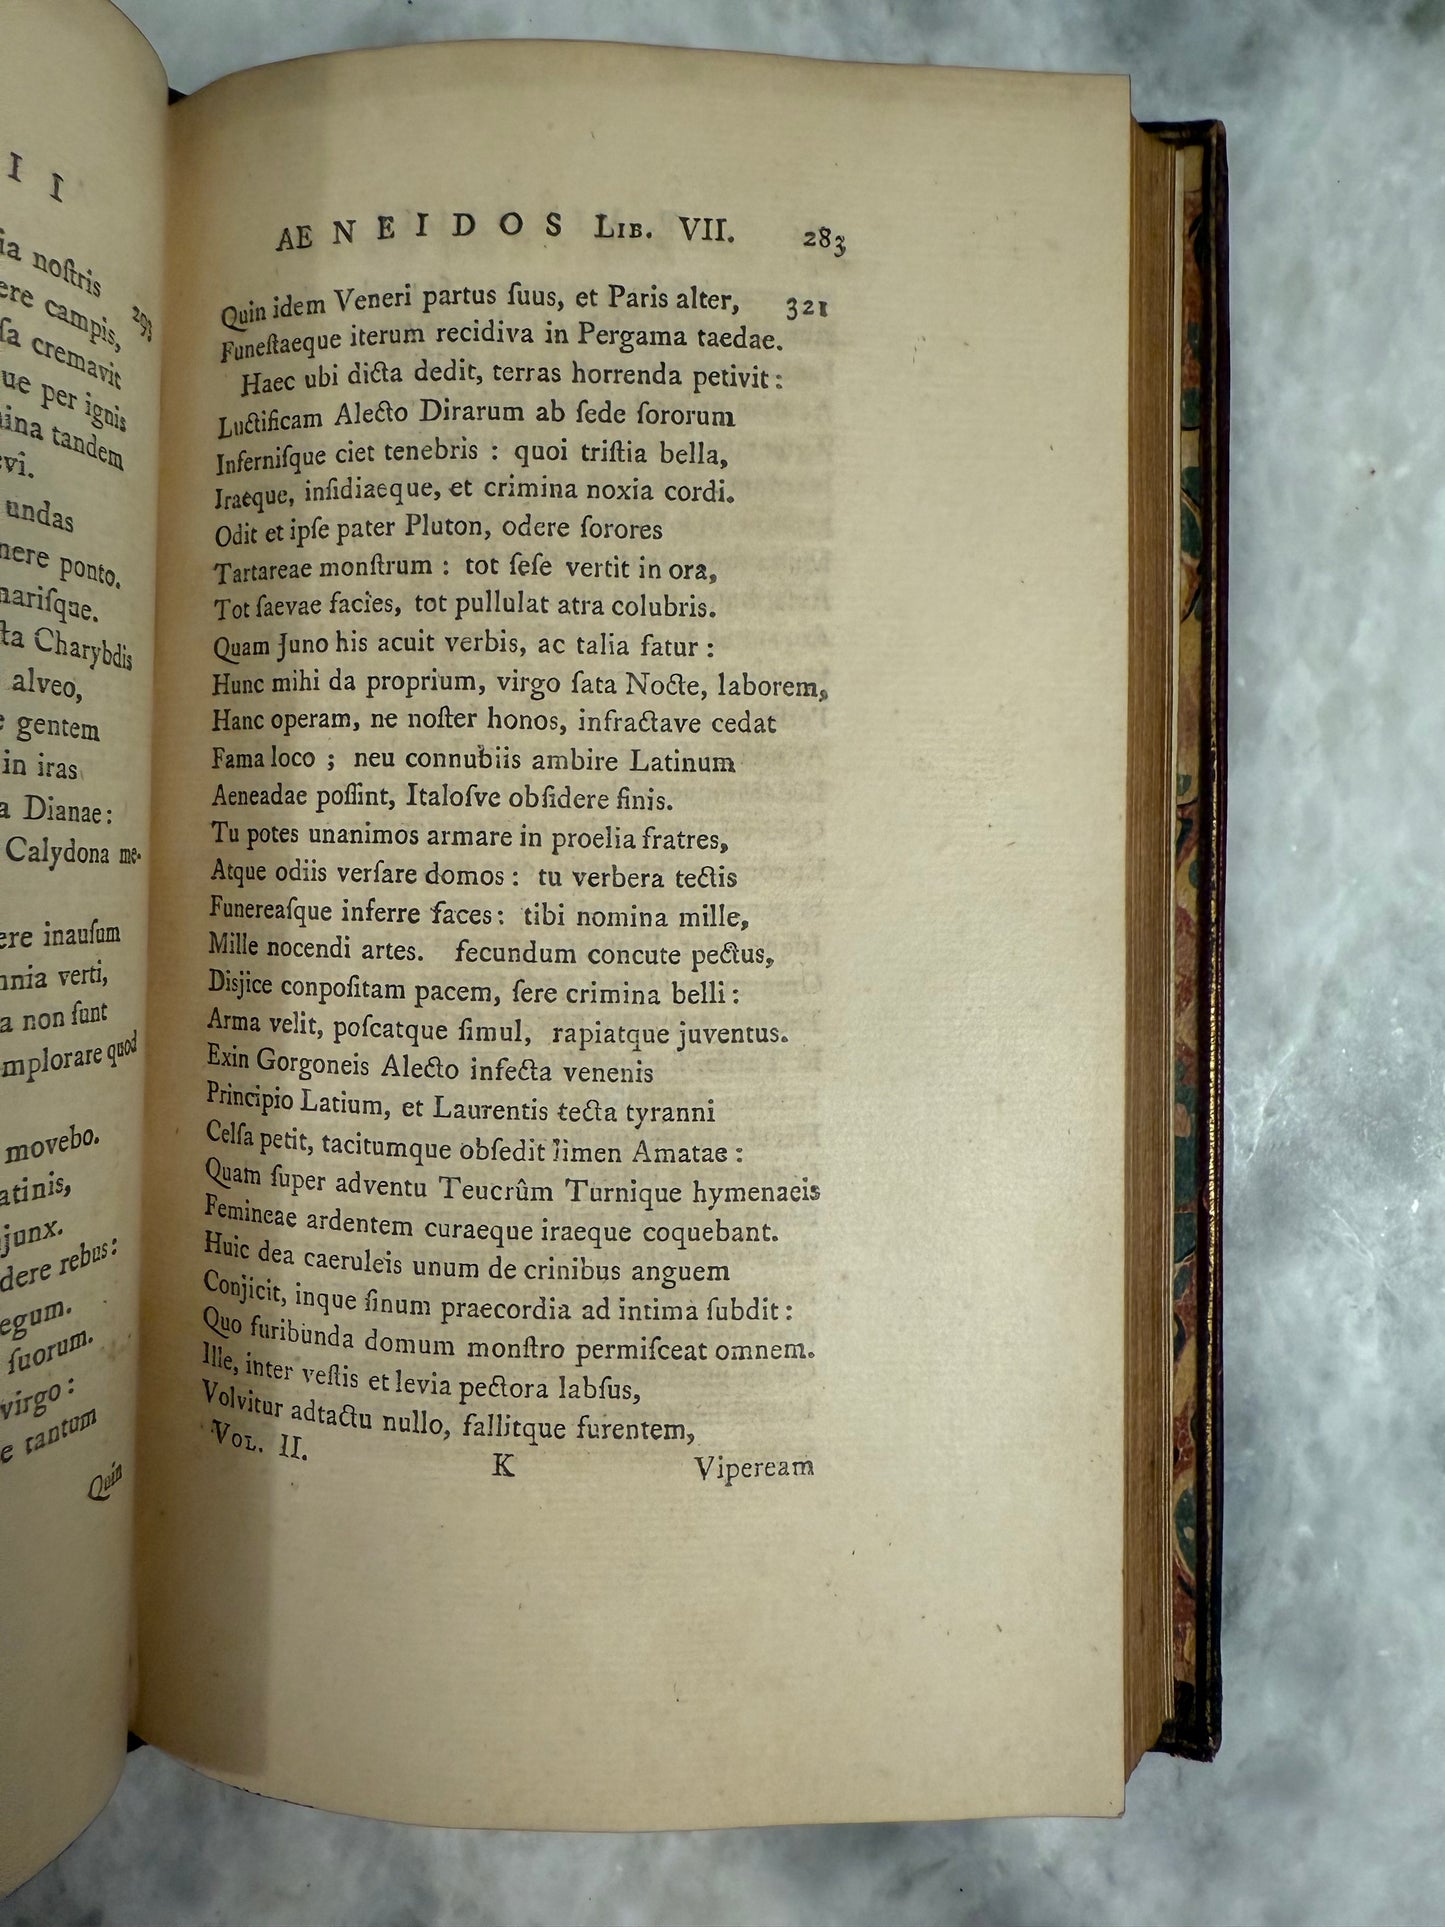 I I
nostris
293
campis,
cremavit
ue per ignis
tandem
undas
ponto.
Charybdis
alveo,
gentem
in iras
Dianae:
Calydona me-
inausum
verti,
non sunt
quod
movebo.
rebus:
suorum.
virgo:
tantum
Quin
AENEIDOS LIB. VII. 283
Quin idem Veneri partus ſuus, et Paris alter, 321
Funeſtaeque iterum recidiva in Pergama taedae.
Haec ubi dicta dedit, terras horrenda petivit:
Luctificam Alecto Dirarum ab ſede ſororum
Inferniſque ciet tenebris : quoi triſtia bella,
Iraeque, inſidiaeque, et crimina noxia cordi.
Odit et ipſe pater Pluton, odere ſorores
Tartareae monſtrum : tot ſeſe vertit in ora,
Tot ſaevae facies, tot pullulat atra colubris.
Quam Juno his acuit verbis, ac talia fatur :
Hunc mihi da proprium, virgo ſata Nocte, laborem,
Hanc operam, ne noſter honos, infractave cedat
Fama loco ; neu connubiis ambire Latinum
Aeneadae poſſint, Italoſve obſidere finis.
Tu potes unanimos armare in proelia fratres,
Atque odiis verſare domos : tu verbera tectis
Funereaſque inferre faces : tibi nomina mille,
Mille nocendi artes. fecundum concute pectus,
Disjice conpoſitam pacem, ſere crimina belli :
Arma velit, poſcatque ſimul, rapiatque juventus.
Exin Gorgoneis Alecto infecta venenis
Principio Latium, et Laurentis tecta tyranni
Celſa petit, tacitumque obſedit limen Amatae :
Quam ſuper adventu Teucrûm Turnique hymenaeis
Femineae ardentem curaeque iraeque coquebant.
Huic dea caeruleis unum de crinibus anguem
Conjicit, inque ſinum praecordia ad intima ſubdit :
Quo furibunda domum monſtro permiſceat omnem.
Ille, inter veſtis et levia pectora labſus,
Volvitur adtactu nullo, fallitque furentem,
VOL. II. K Vipeream